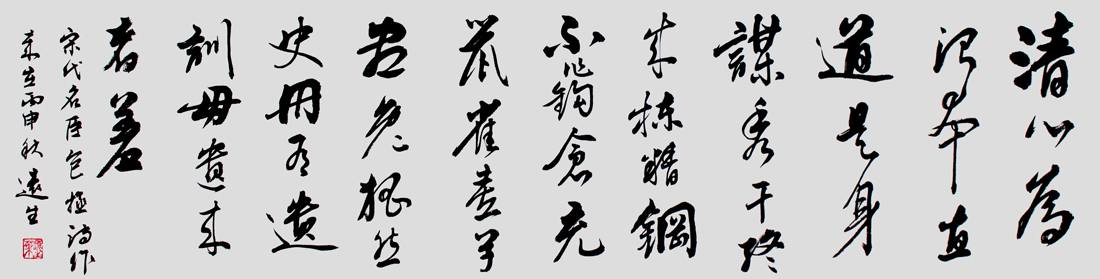 清心為
治本直
道是身
謀秀干終
成棟精鋼
不作鈎倉充
鼠雀喜草
盡兔狐愁
史冊有遺
訓毋遺来
者羞
宋代名臣包拯詩作
丙申秋遠生